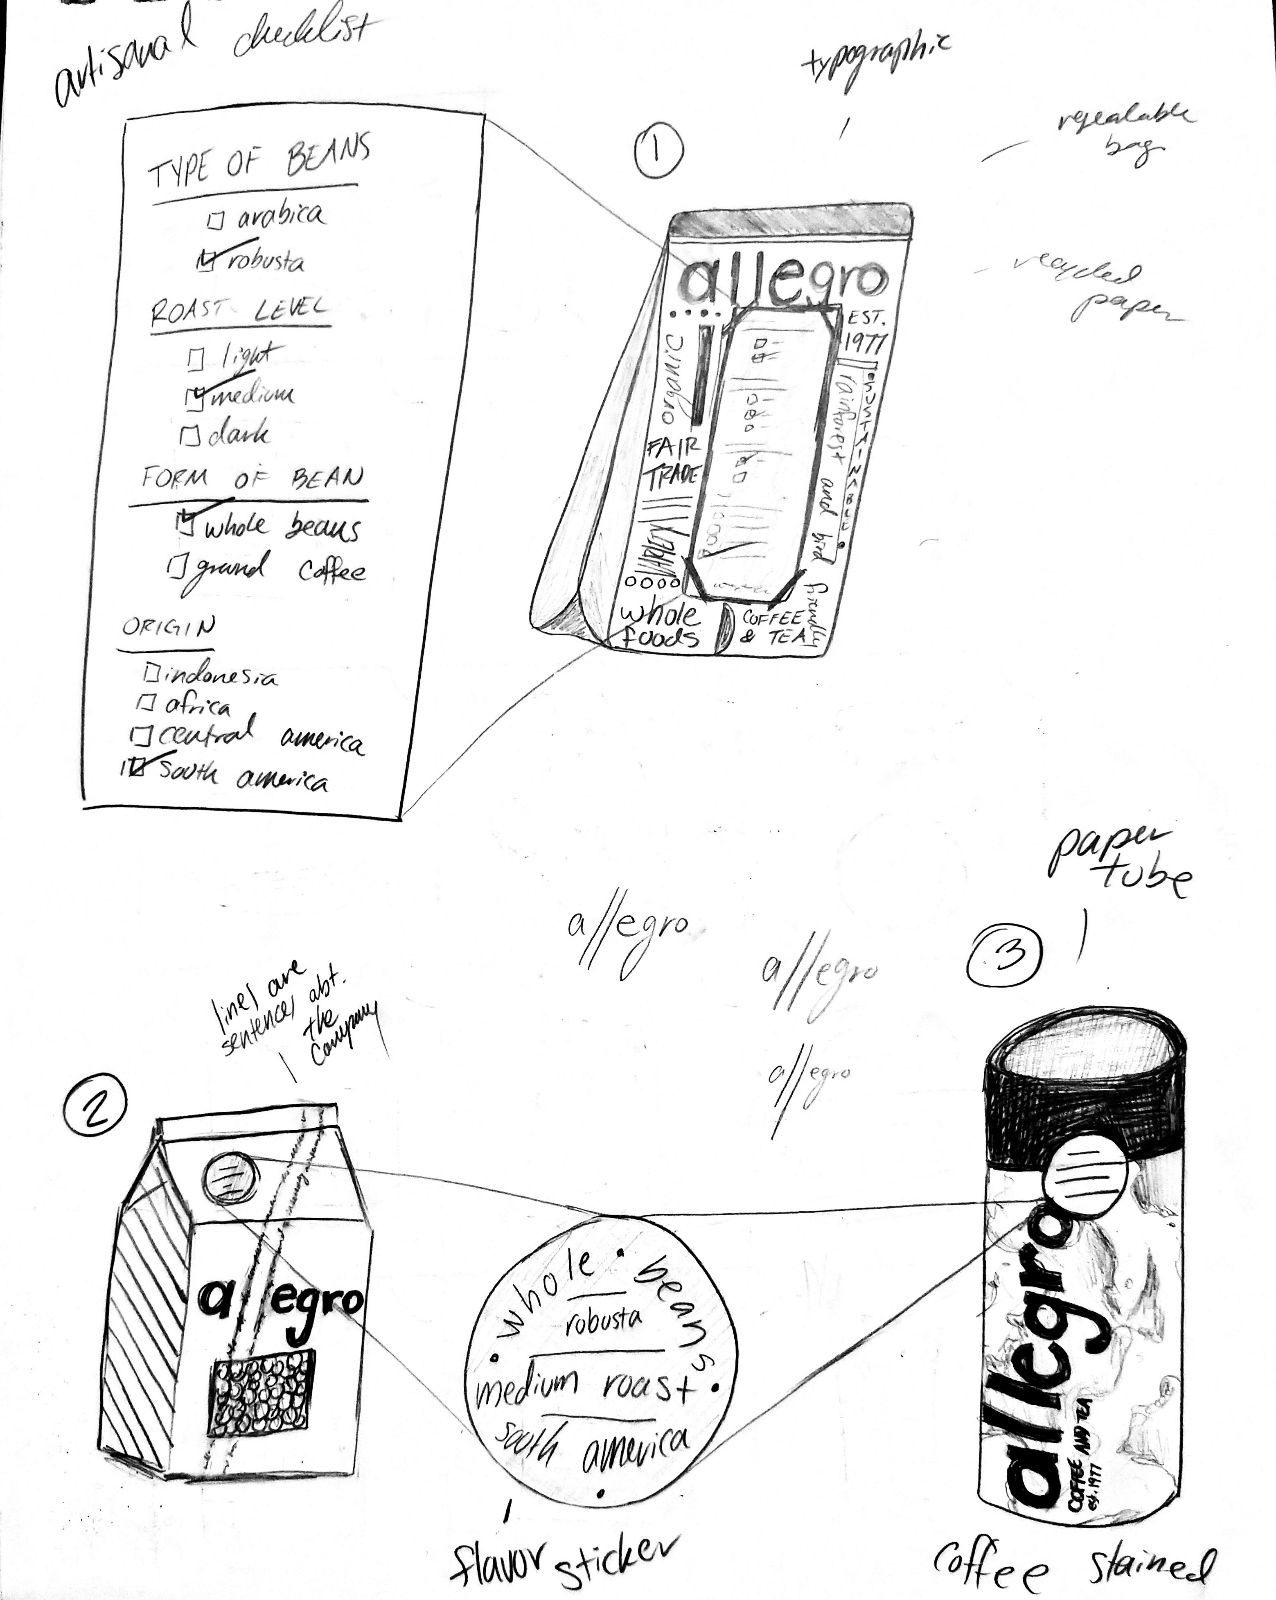 artisanal checklist
TYPE OF BEANS
arabica
robusta
ROAST LEVEL
light
medium
dark
FORM OF BEAN
whole beans
ground coffee
ORIGIN
indonesia
africa
central america
south america
1
typographic
resealable
bag
recycled
paper
allegro
EST.
1977
organic
FAIR
TRADE
rainforest and bird friendly
whole
foods
COFFEE
& TEA
allegro
allegro
allegro
2
lines are
sentences abt.
the
company
allegro
whole · beans
robusta
medium roast
south america
flavor sticker
3
paper
tube
allegro
COFFEE AND TEA
est. 1977
coffee stained